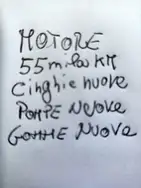 MOTORE
55 mila KM
Cinghie nuove
POMPE NUOVE
GOMME NUOVE